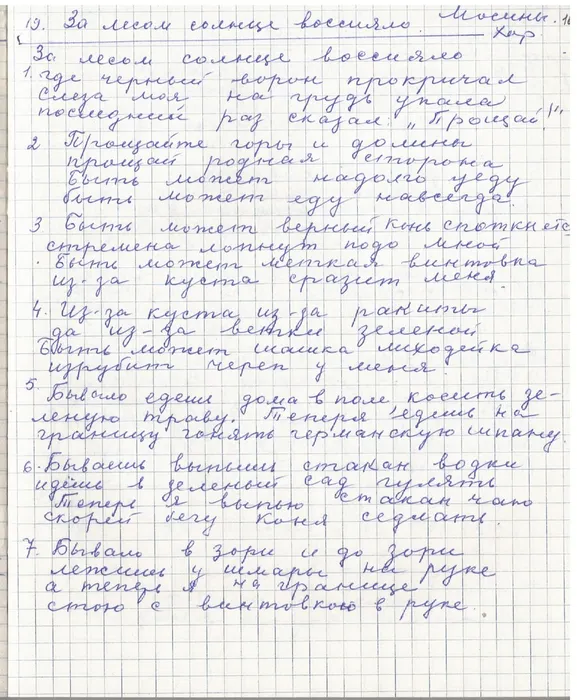 19. За лесом солнце воссияло. Мосины.
Хор
За лесом солнце воссияло
1. где черный ворон прокричал
слеза моя на грудь упала
последний раз сказал: „Прощай!"
2 Прощайте горы и долины
прощай родная сторона
быть может надолго уеду
быть может еду навсегда.
3 Быть может верный конь споткнется
стремена лопнут подо мной
Быть может меткая винтовка
из-за куста сразит меня.
4. Из-за куста из-за ракиты
да из-за ветки зеленой
Быть может шашка лиходейка
изрубит череп у меня.
5. Бывало едешь дома в поле косить зе-
леную траву. Теперя едешь на
границу гонять германскую шпану.
6. Бываешь выпьешь стакан водки
идешь в зеленый сад гулять
Теперь я выпью стакан чаю
скорей бегу коня седлать.
7. Бывало в зори и до зори
лежишь у шмары на руке
а теперь я на границе
стою с винтовкою в руке.